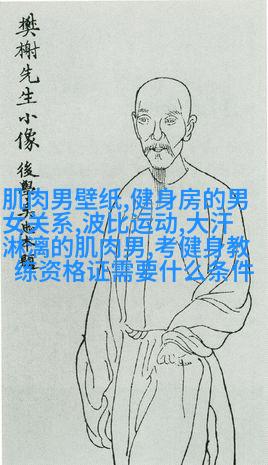 樊榭先生小像
後學
肌肉男壁纸,健身房的男
女关系,波比运动,大汗
淋漓的肌肉男,考健身教
练资格证需要什么条件